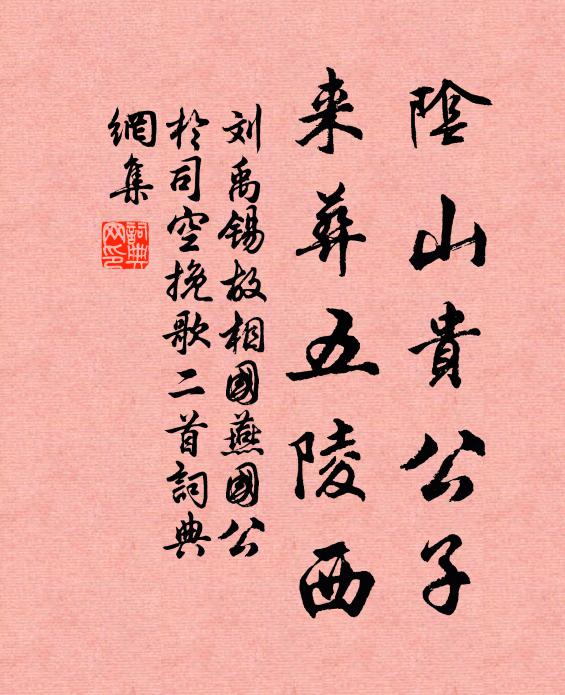 陰山貴公子
来葬五陵西
刘禹锡故相國燕國公
於司空挽歌二首詞典
網集
詞典
网印